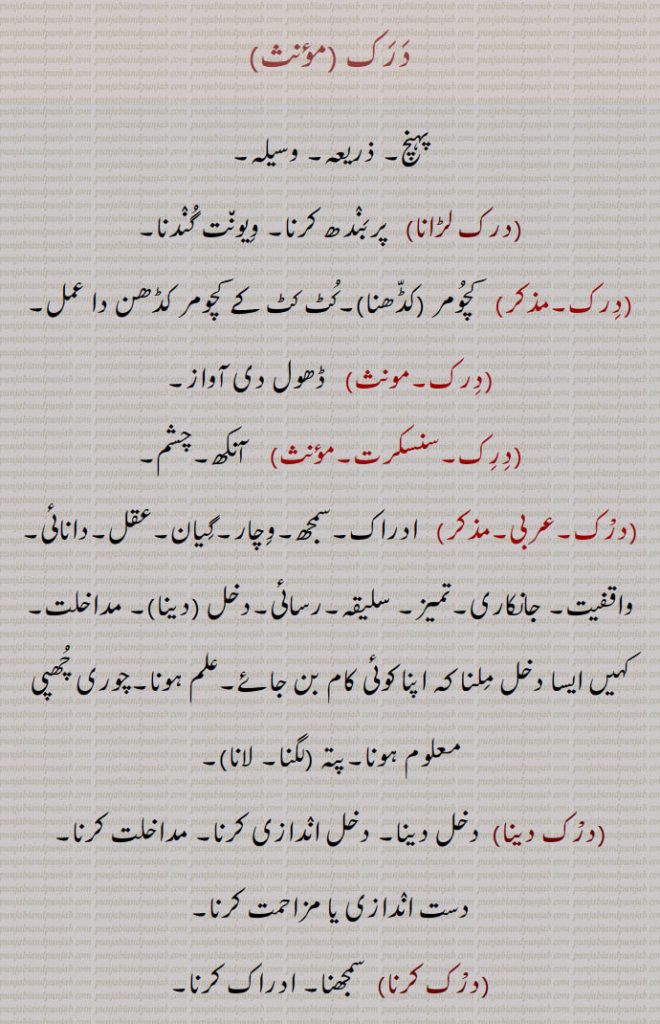 دَرَک (مؤنث)
پہنچ۔ ذریعہ۔ وسیلہ۔
(درک لڑانا) پربَنْدھ کرنا۔ وِیونّت گُنْدنا۔
(دِرک۔مذکر) کچُومر (کڈّھنا)۔کُٹ کٹ کے کچومر کڈھن دا عمل۔
(دِرک۔مونث) ڈھول دی آواز۔
(دِرِک۔سنسکرت۔مؤنث) آنکھ۔چشم۔
(درْک۔عربی۔مذکر) ادراک۔سمجھ۔وِچار۔گیان۔عقل۔دانائی۔
واقفیت۔ جانکاری۔تمیز۔ سلیقہ۔رسائی۔دخل (دینا)۔ مداخلت۔
کہیں ایسا دخل مِلنا کہ اپنا کوئی کام بن جائے۔علم ہونا۔چوری چُھپی
معلوم ہونا۔پتہ (لگنا۔ لانا)۔
(درْک دینا) دخل دینا۔ دخل انْدازی کرنا۔ مداخلت کرنا۔
دست انْدازی یا مزاحمت کرنا۔
(درْک کرنا) سمجھنا۔ ادراک کرنا۔